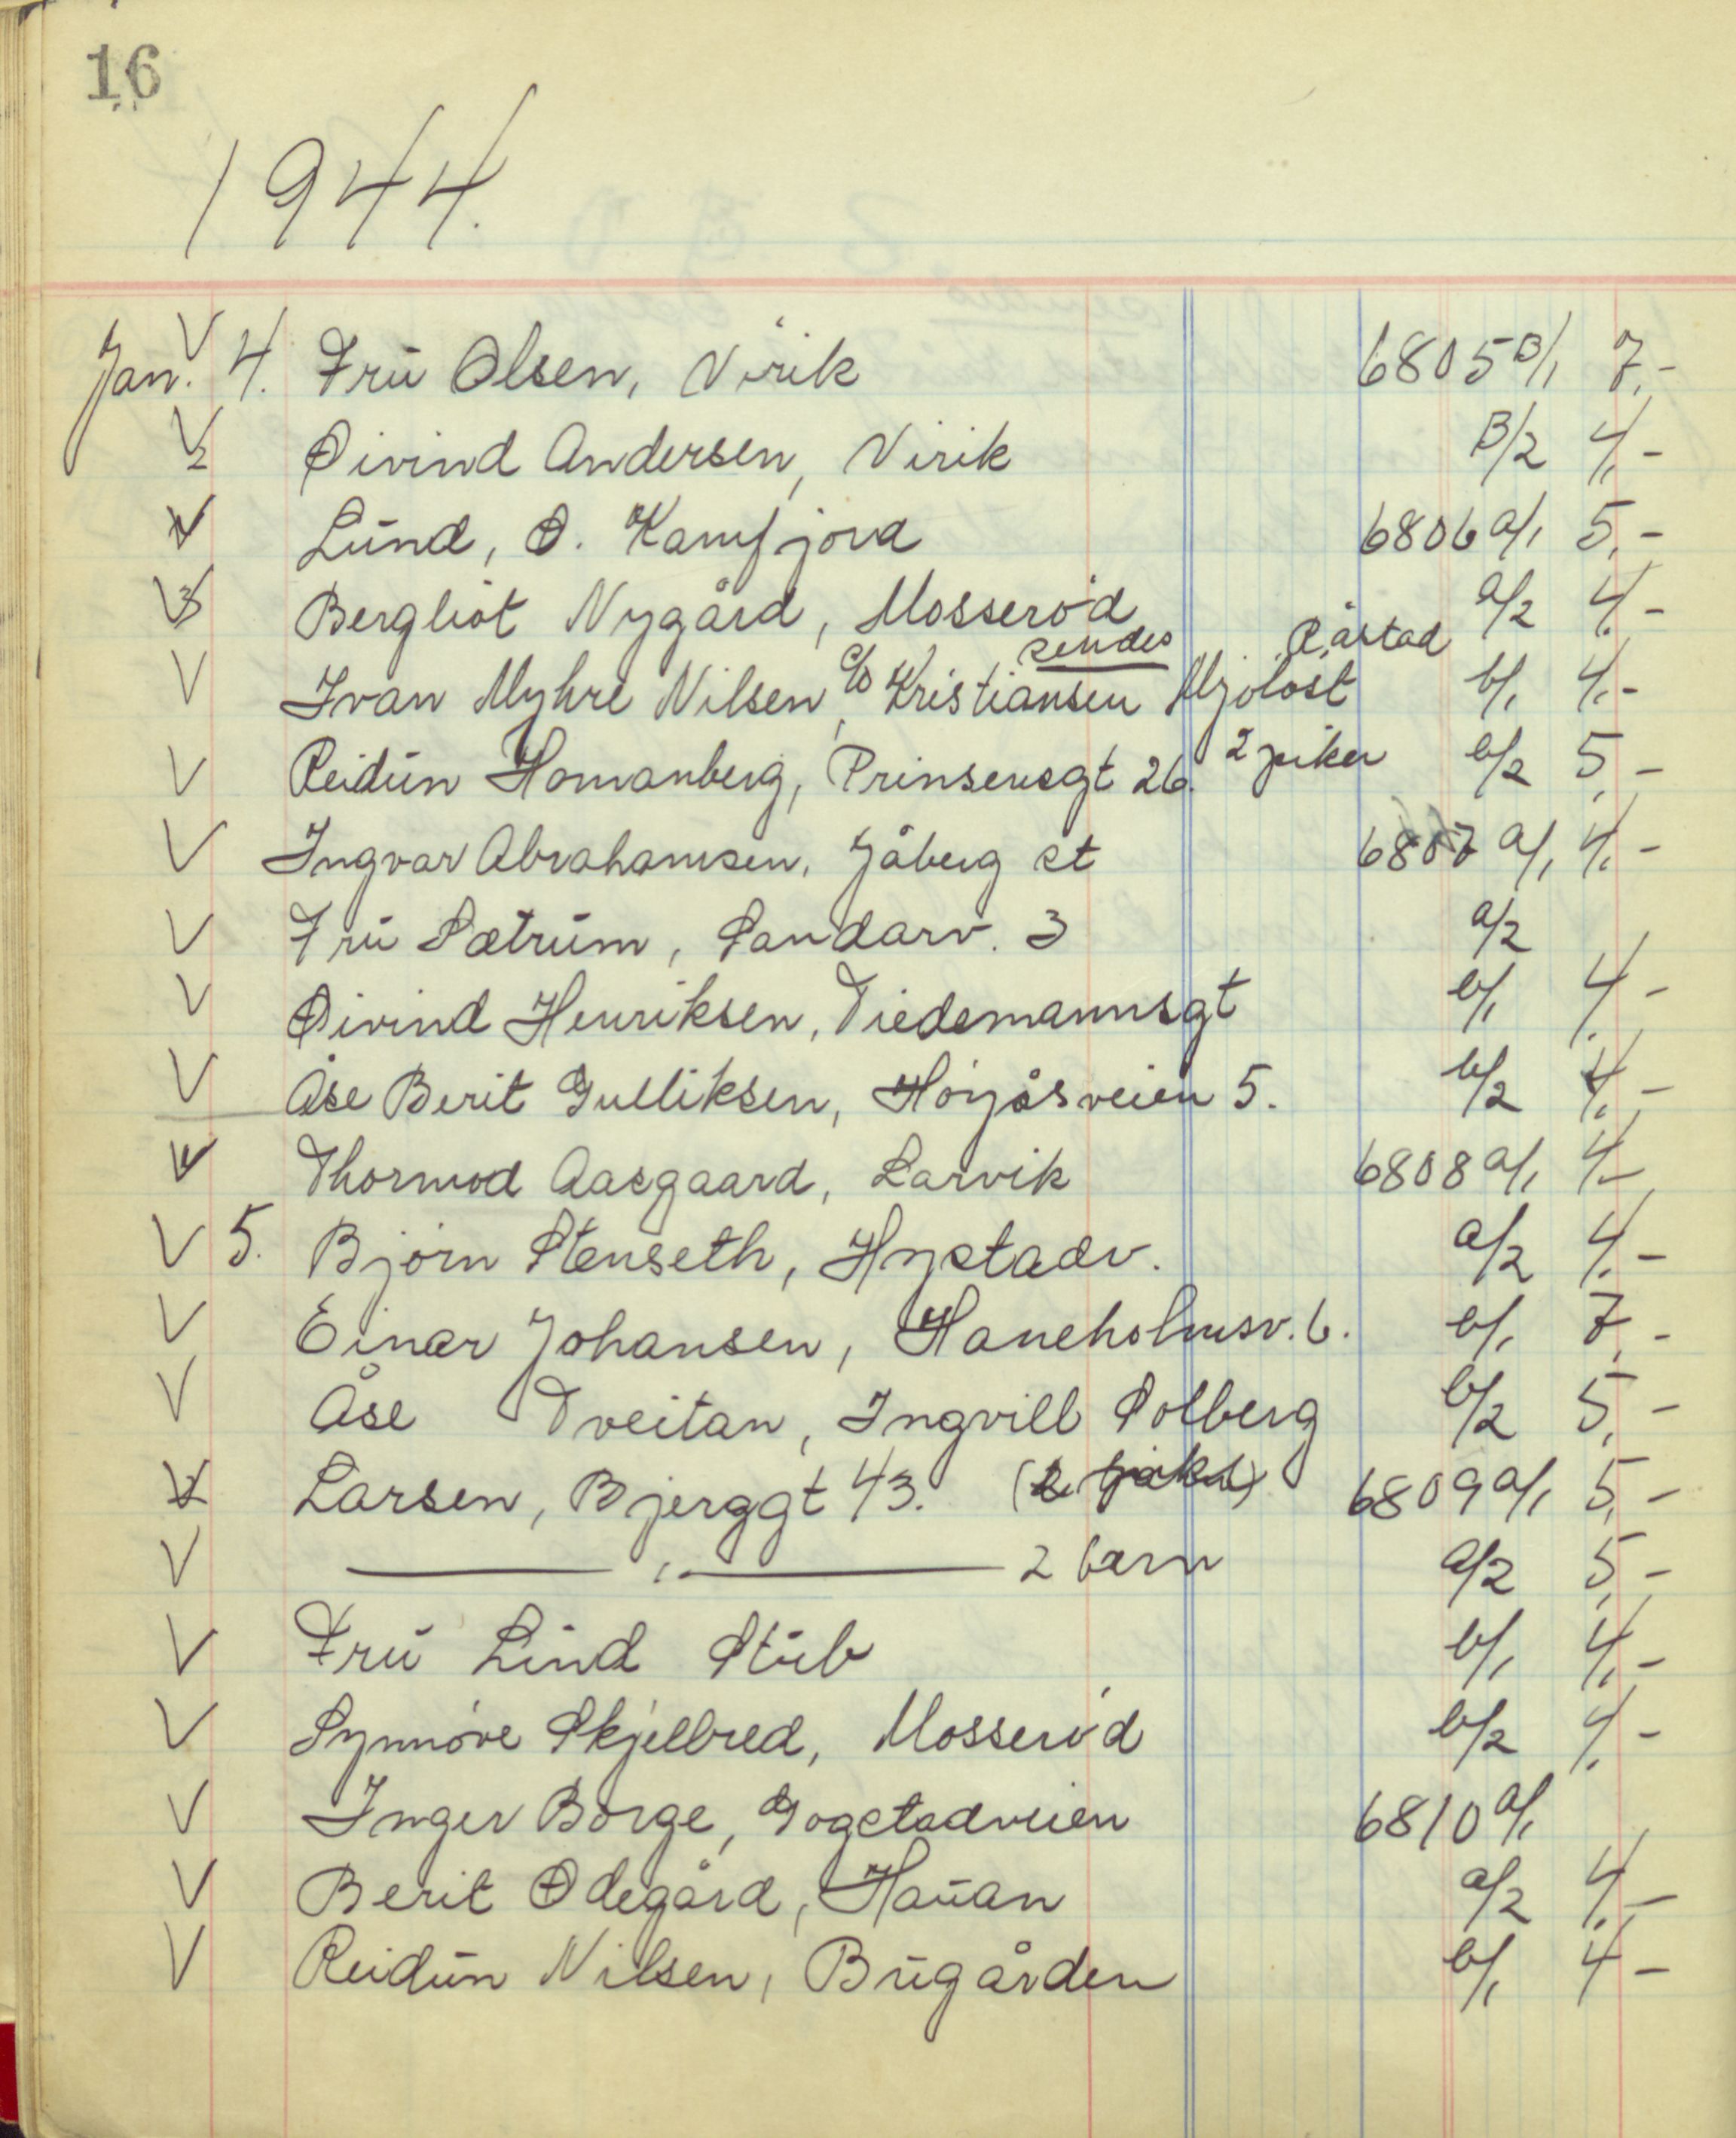 16
1944.
Jan. 4. Fru Olsen, Virik 6805 B/1 7,-
2 Øivind Andersen, Virik B/2 4,-
Lund, Ø. Kamfjord 6806 a/1 5,-
3 Bergliot Nygård, Mosserød a/2 4,-
sendes Råstad
Ivan Myhre Nilsen, c/o Kristiansen Mjøløst b/1 4,-
Reidun Homanberg, Prinsensgt 26. 2 piker b/2 5,-
Ingvar Abrahamsen, Jåberg st 6807 a/1 4,-
Fru Sætrum, Sandarv. 3 a/2
Øivind Henriksen, Tiedemannsgt b/1 4,-
Åse Berit Gulliksen, Høyåsveien 5. b/2 4,-
Thormod Aasgaard, Larvik 6808 a/1 4,-
5. Bjørn Stenseth, Hystadv. a/2 4,-
Einar Johansen, Haneholmsv. 6. b/1 7,-
Åse Tveitan, Ingvill Solberg b/2 5,-
Larsen, Bjerggt 43. 6809 a/1 5,-
— " — 2 barn a/2 5,-
Fru Lind Stub b/1 4,-
Synnøve Skjelbred, Mosserød b/2 4,-
Inger Borge, Gogstadveien 6810 a/1
Berit Ødegård, Hauan a/2 4,-
Reidun Nilsen, Bugården b/1 4-